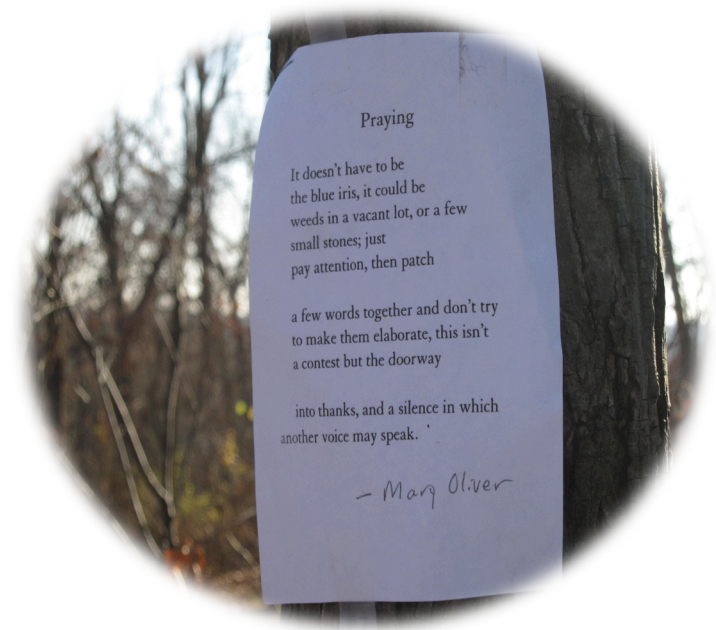 Praying
It doesn't have to be
the blue iris, it could be
weeds in a vacant lot, or a few
small stones; just
pay attention, then patch
a few words together and don't try
to make them elaborate, this isn't
a contest but the doorway
into thanks, and a silence in which
another voice may speak.
– Mary Oliver